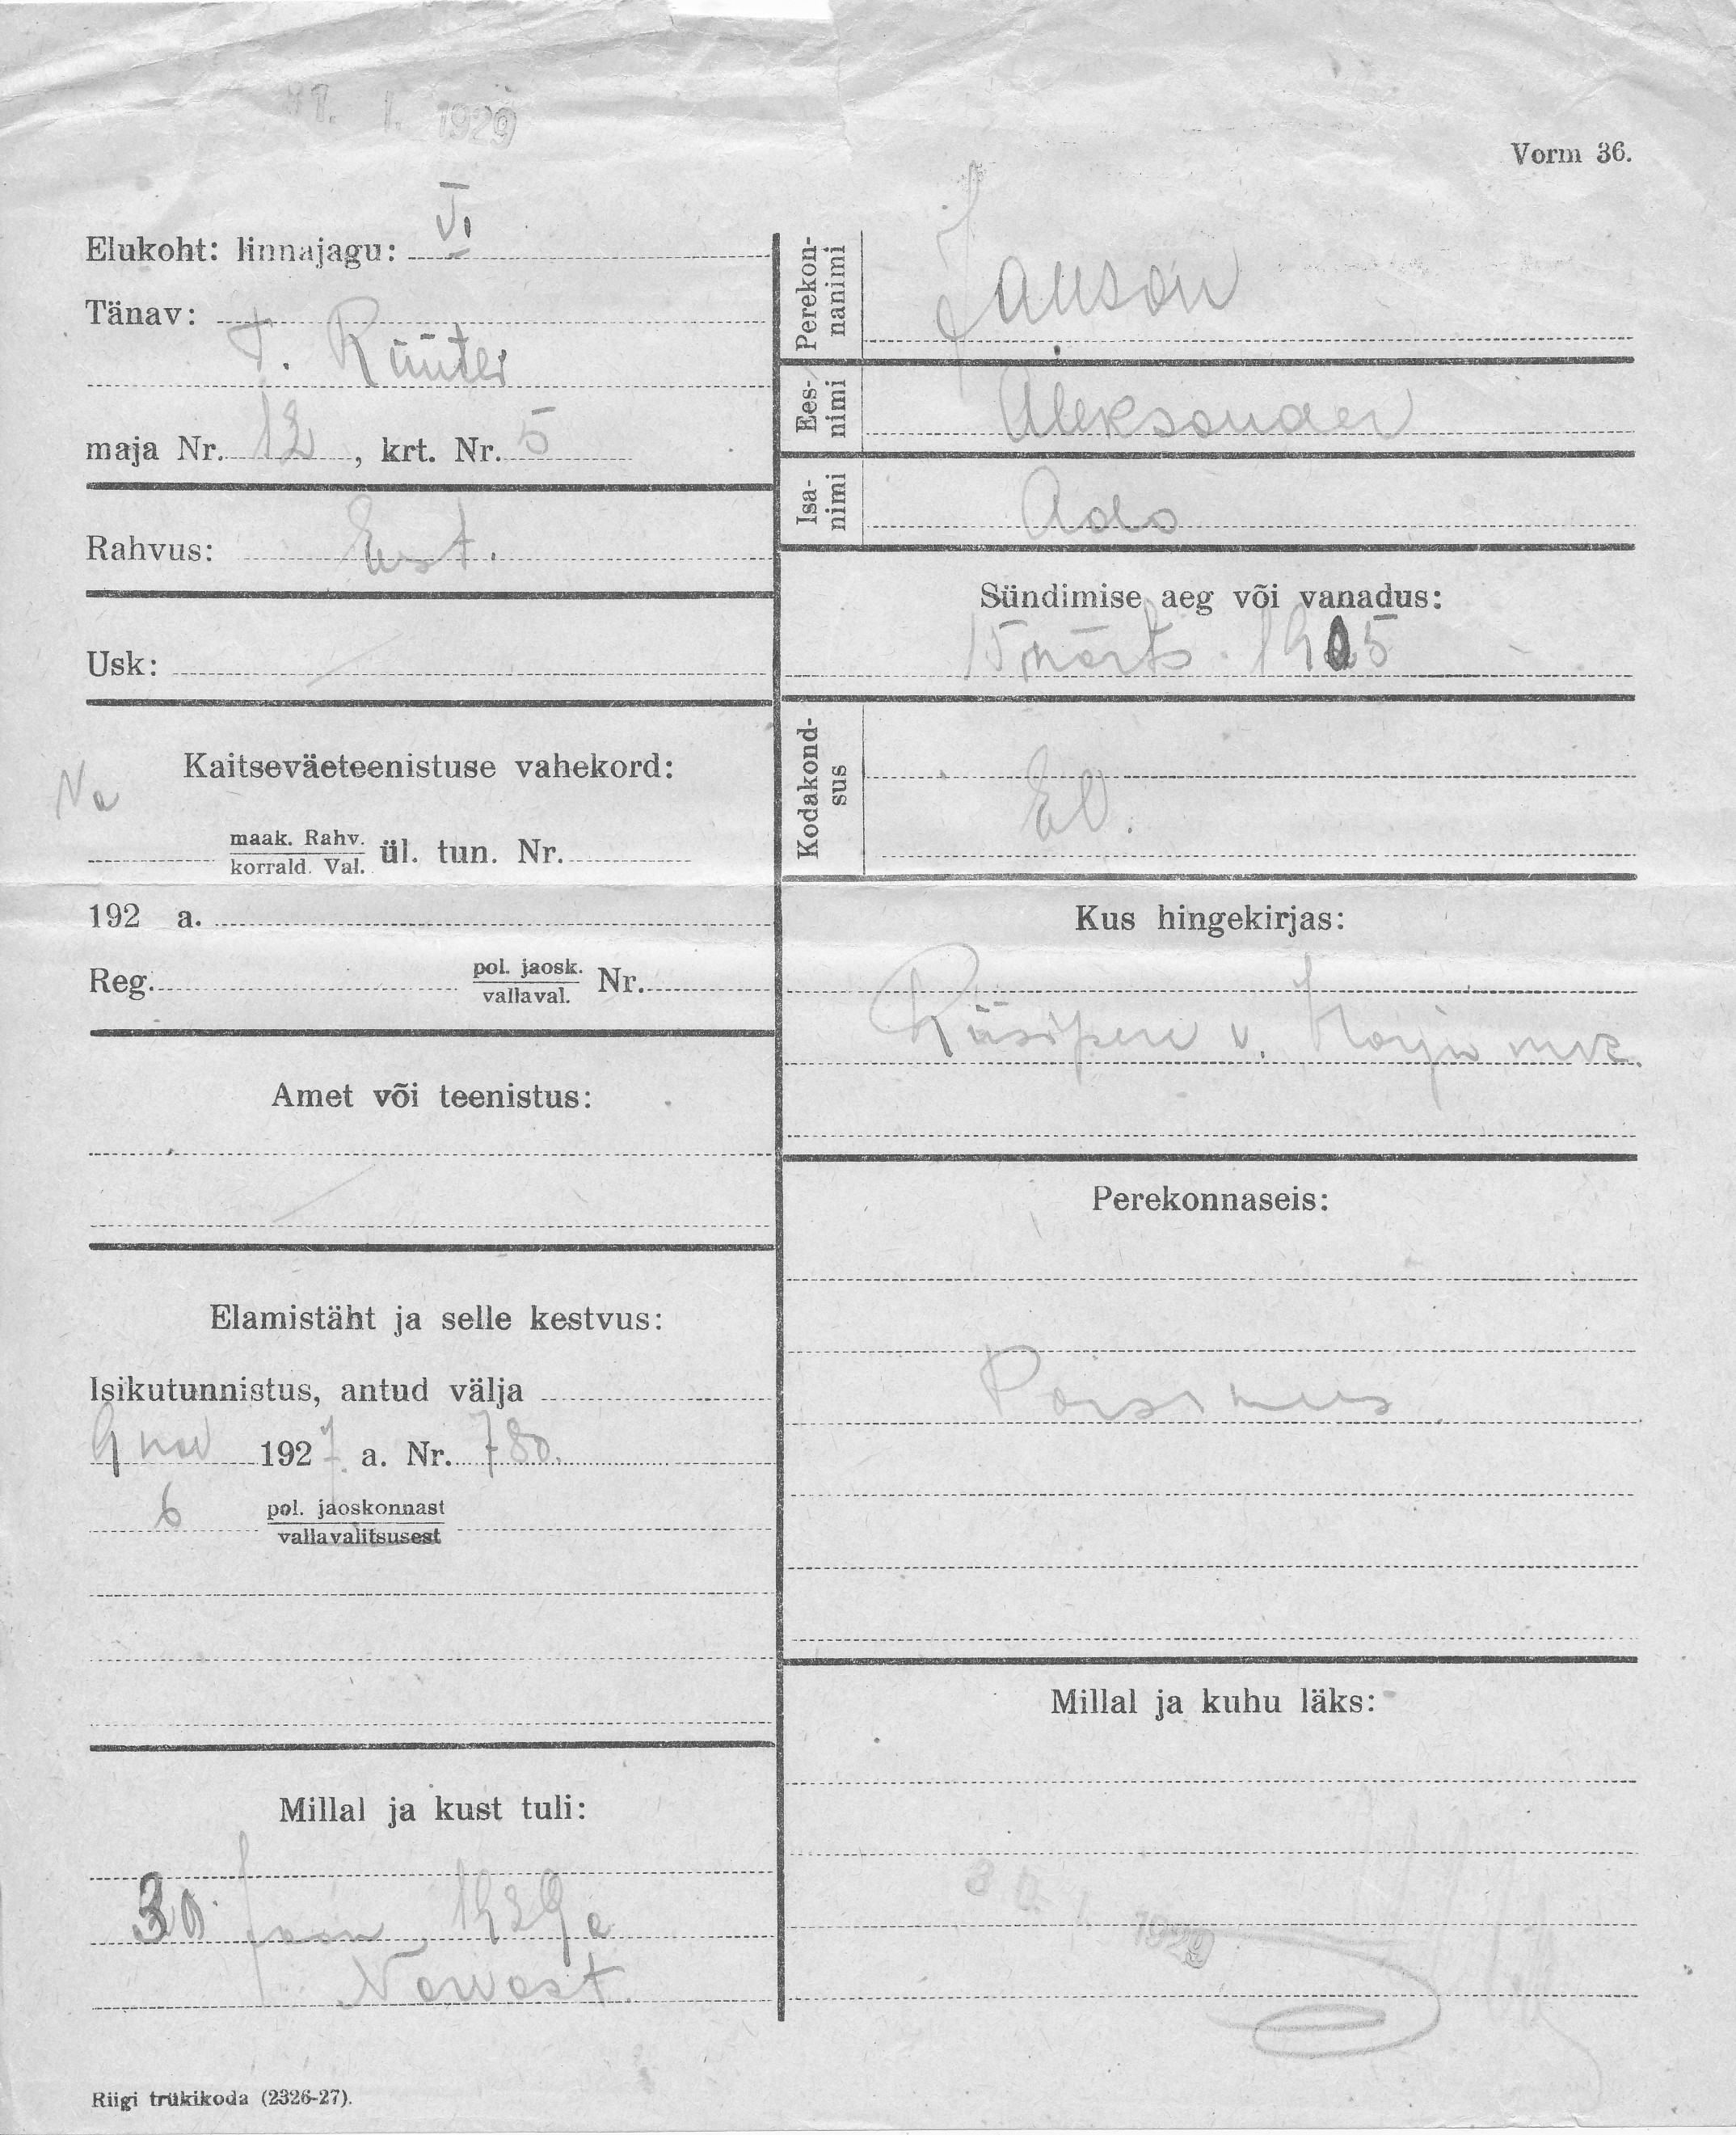 31. I. 1929
Vorm 36.
Elukoht: linnajagu: VI
Tänav:
T. Rüütli
maja Nr. 12, krt. Nr. 5
Rahvus: Eest.
Usk: /
Kaitseväeteenistuse vahekord:
maak. Rahv.
korrald. Val.
ül. tun. Nr.
192 a.
Reg. pol. jaosk. Nr.
vallaval.
Amet või teenistus:
Elamistäht ja selle kestvus:
Isikutunnistus, antud välja
9 nov 1927 a. Nr. 780.
6 pol. jaoskonnast
vallavalitsusest
Millal ja kust tuli:
30. Jaan. 1929 a
Narvast.
Perekon-
nanimi
Janson
Ees-
nimi
Aleksander
Isa-
nimi
Ado
Sündimise aeg või vanadus:
15 märts. 1905
Kodakond-
sus
EV.
Kus hingekirjas:
Riisipere v. Harju mk.
Perekonnaseis:
Poismees
Millal ja kuhu läks:
30. I. 1929
Riigi trükikoda (2326-27).